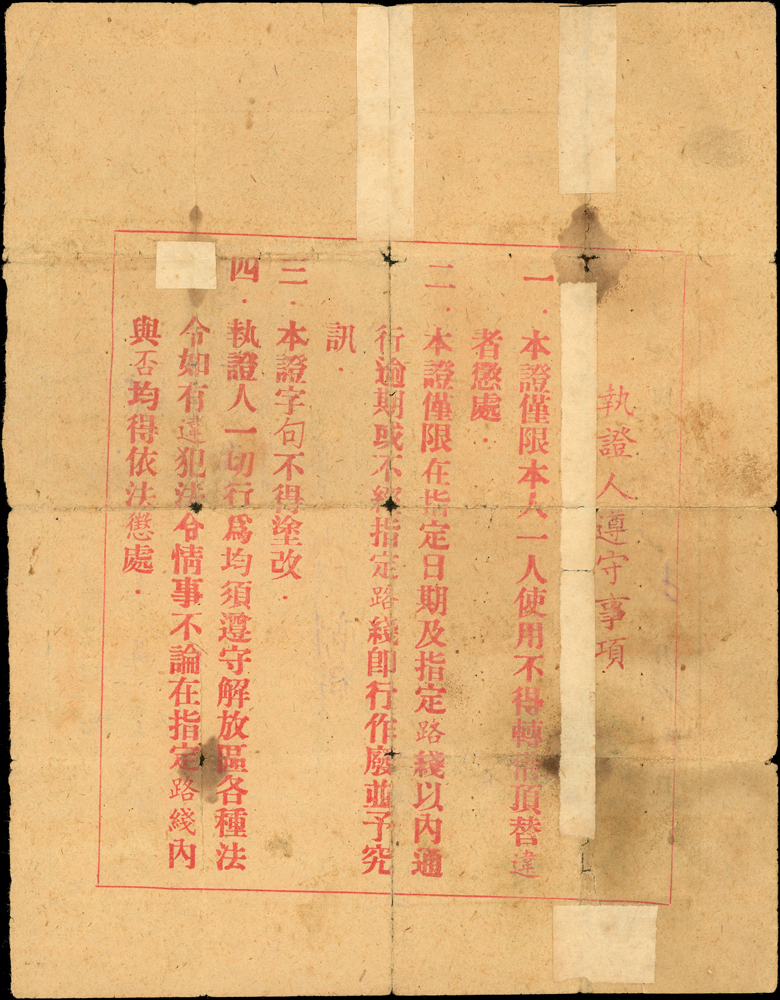 執證人遵守事項
一．本證僅限本人一人使用不得轉借頂替違
者懲處．
二．本證僅限在指定日期及指定路綫以內通
行逾期或不經指定路綫即行作廢並予究
訊．
三．本證字句不得塗改．
四．執證人一切行爲均須遵守解放區各種法
令如有違犯法令情事不論在指定路綫內
與否均得依法懲處．